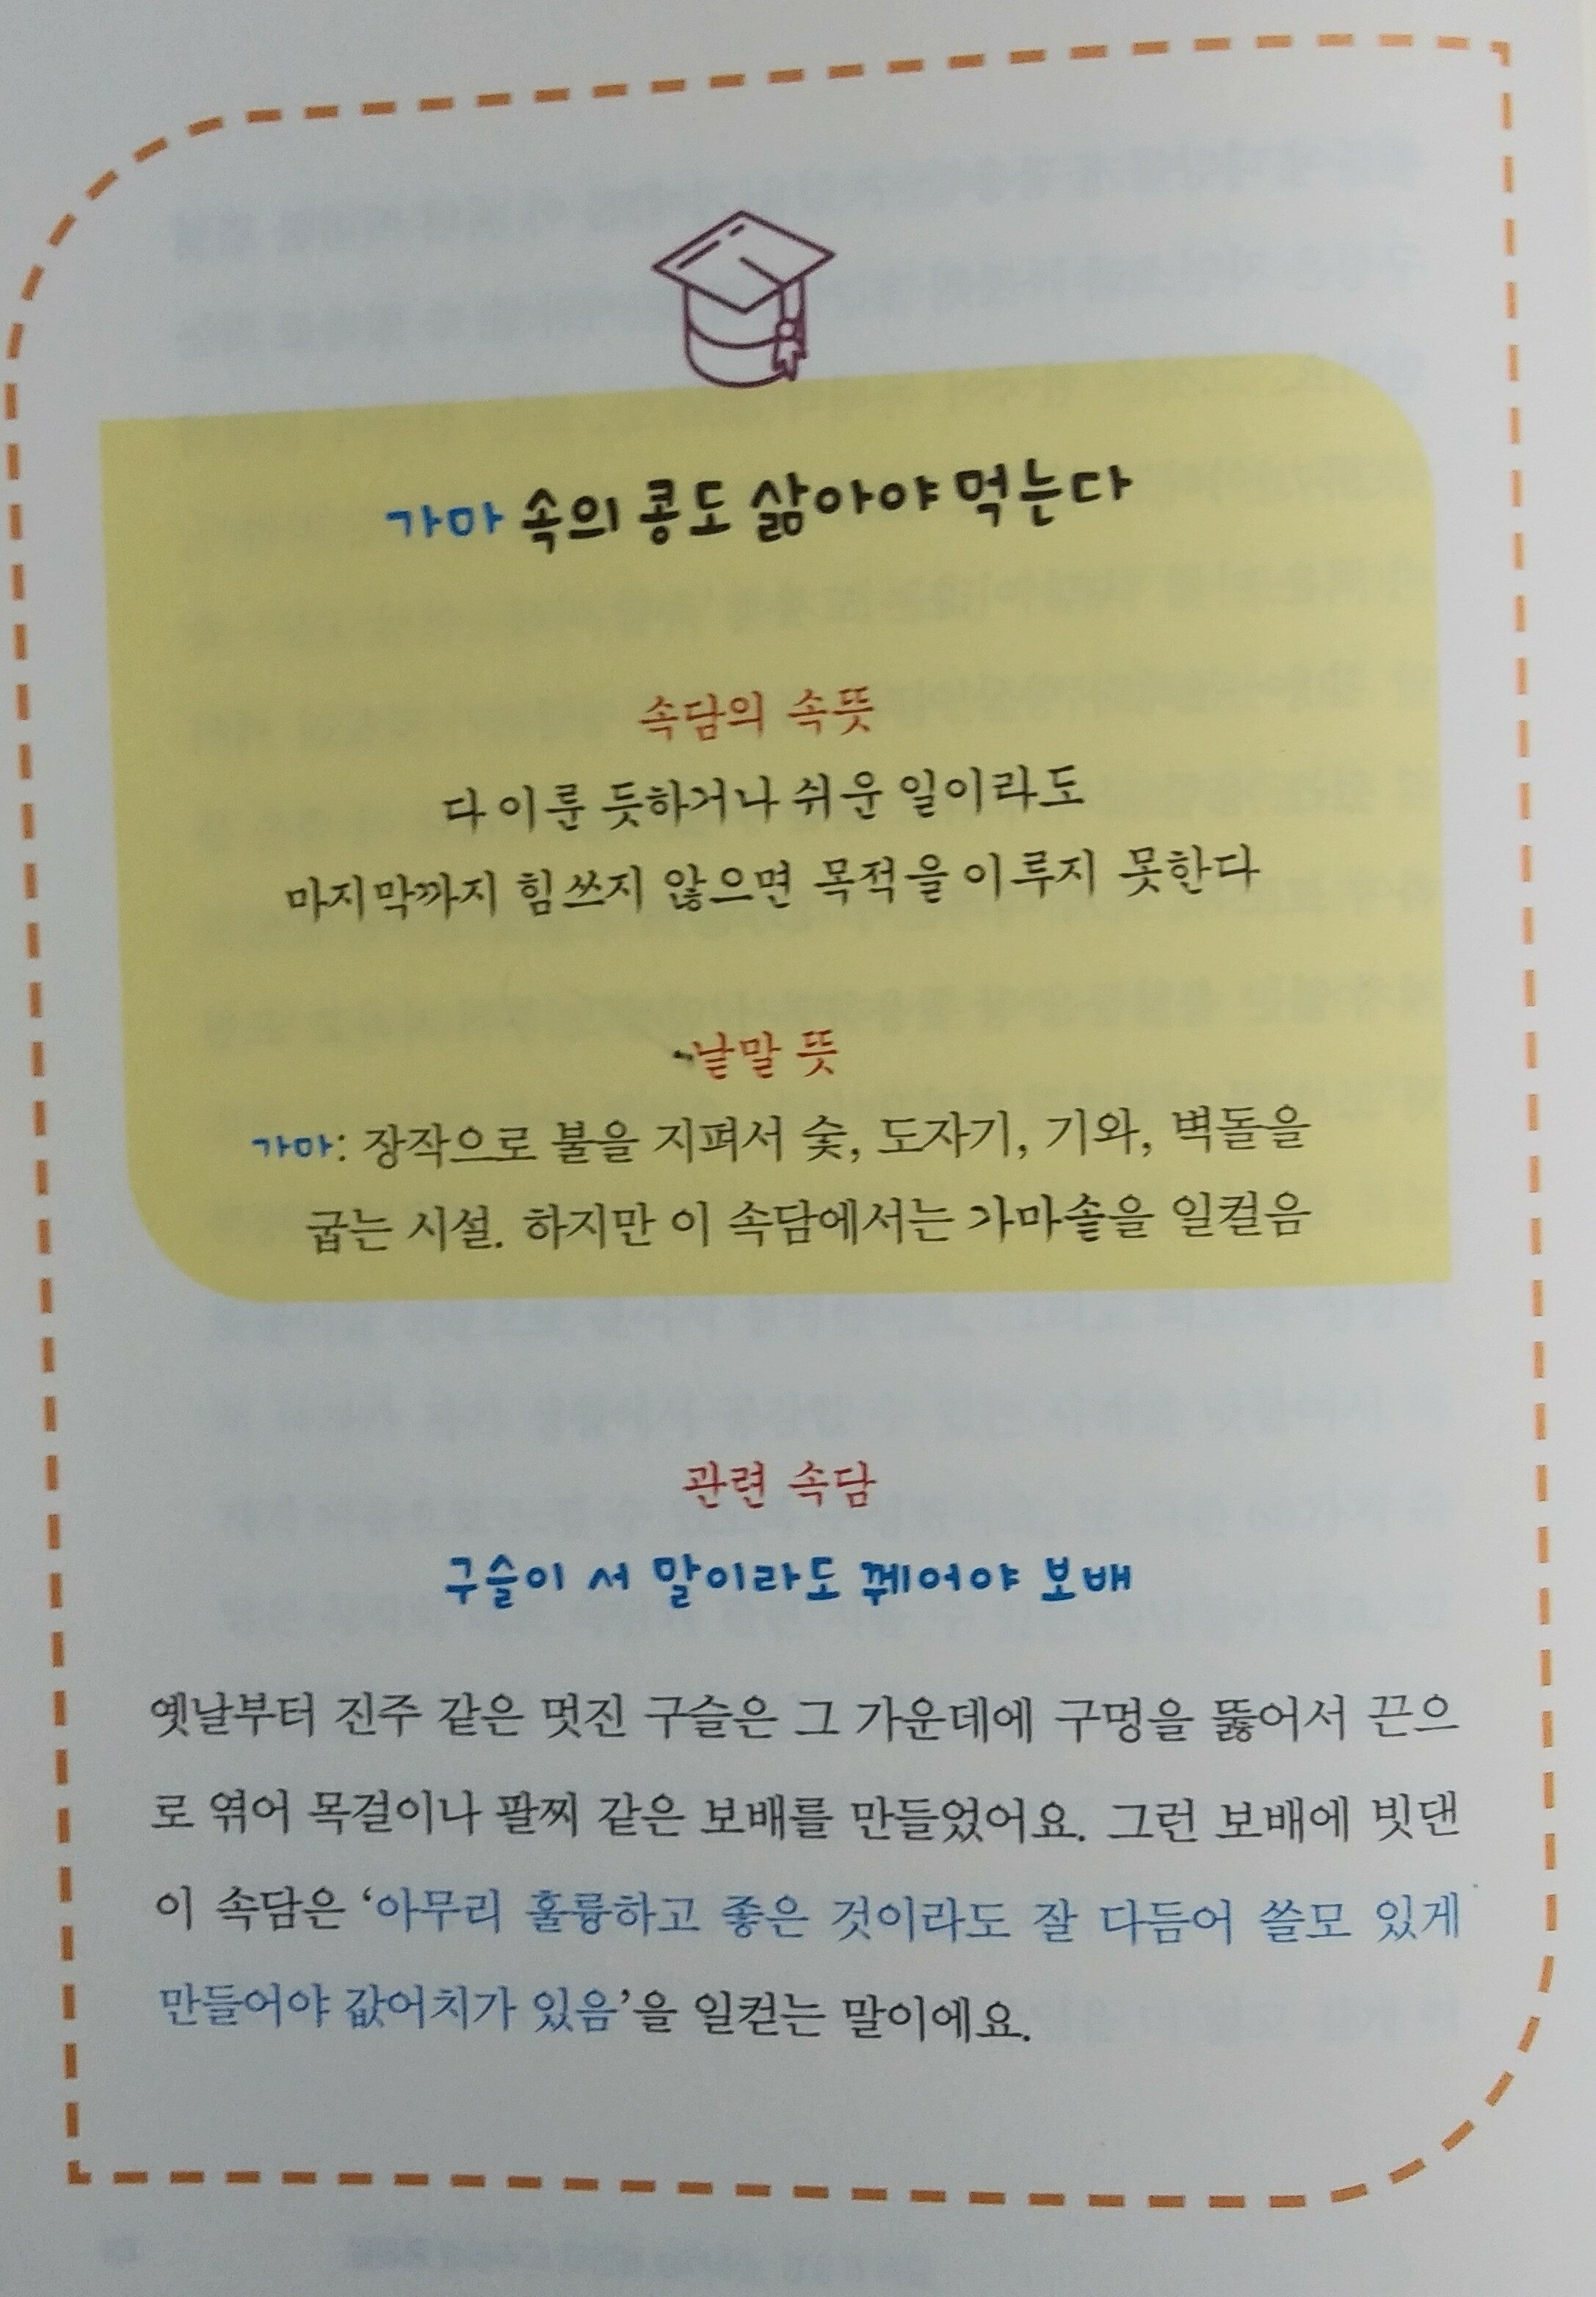 가마 속의 콩도 삶아야 먹는다
속담의 속뜻
다 이룬 듯하거나 쉬운 일이라도
마지막까지 힘쓰지 않으면 목적을 이루지 못한다
낱말 뜻
가마: 장작으로 불을 지펴서 숯, 도자기, 기와, 벽돌을
굽는 시설. 하지만 이 속담에서는 가마솥을 일컬음
관련 속담
구슬이 서 말이라도 꿰어야 보배
옛날부터 진주 같은 멋진 구슬은 그 가운데에 구멍을 뚫어서 끈으
로 엮어 목걸이나 팔찌 같은 보배를 만들었어요. 그런 보배에 빗댄
이 속담은 ‘아무리 훌륭하고 좋은 것이라도 잘 다듬어 쓸모 있게
만들어야 값어치가 있음’을 일컫는 말이에요.